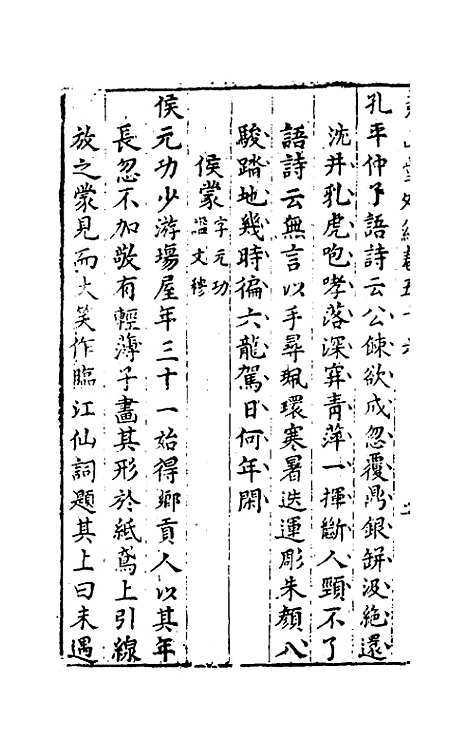 孔平仲予語詩云公餗欲成忽覆鼎銀缾汲絶還
沈井乳虎咆哮落深穽青萍一揮斷人頸不了
語詩云無言以手尋珮環寒暑迭運彫朱顔八
駿踏地幾時徧六龍駕日何年閑
侯蒙字元功
謚文穆
侯元功少游塲屋年三十一始得鄉貢人以其年
長忽不加敬有輕薄子畫其形於紙鳶上引線
放之蒙見而大笑作臨江仙詞題其上曰未遇